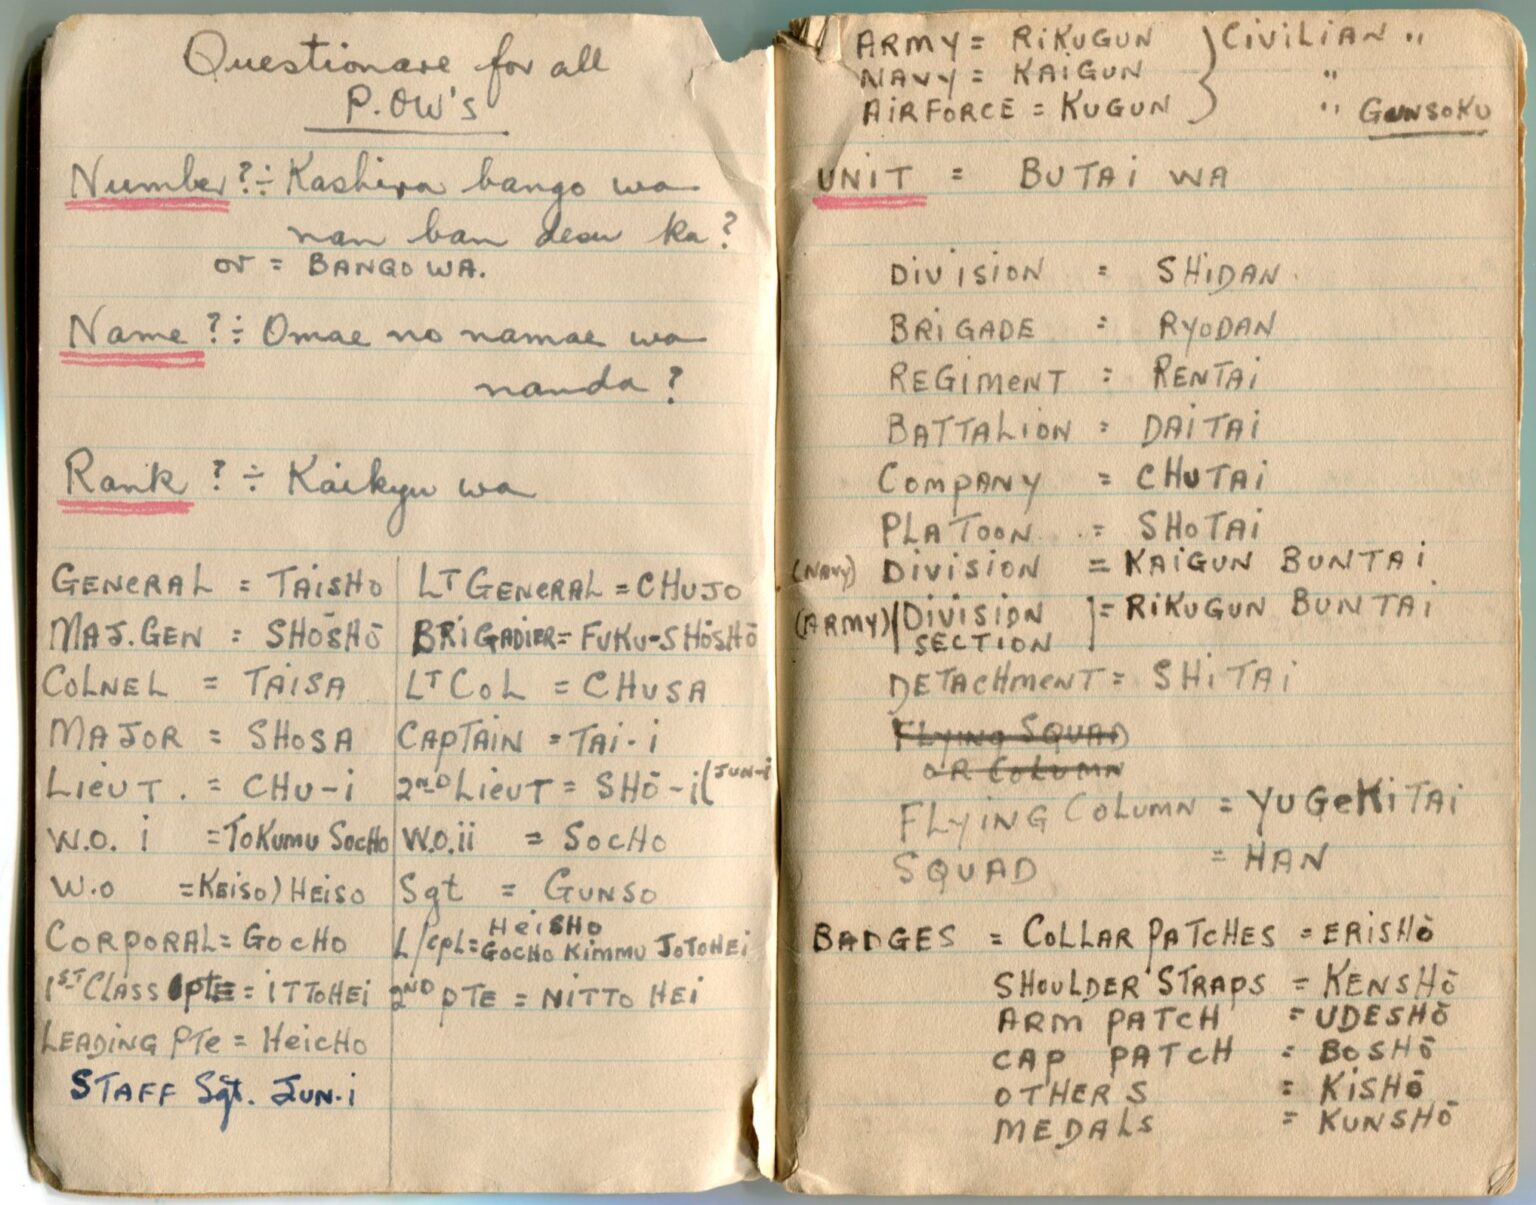 Questionare for all
P.OW's
Number?÷ Kashira bango wa
nan ban desu ka?
or = BANGO WA.
Name?÷ Omae no namae wa
nanda?
Rank?÷ Kaikyu wa
GENERAL = TAISHO
LT GENERAL = CHUJO
MAJ.GEN = SHŌSHŌ
BRIGADIER= FUKU-SHŌSHŌ
COLNEL = TAISA
LT COL = CHUSA
MAJOR = SHOSA
CAPTAIN = TAI-i
LIEUT. = CHU-i
2ND LIEUT = SHŌ-i (JUN-i
W.O. i = TOKUMU SOCHO
W.O.ii = SOCHO
W.O = KEISO) HEISO
Sgt = GUNSO
CORPORAL = GOCHO
HEISHO
L/CPL = GOCHO KIMMU JOTOHEI
1ST CLASS PTE = ITTOHEI
2ND PTE = NITTO HEI
LEADING PTE = HEICHO
STAFF Sgt. JUN-i
ARMY = RIKUGUN } CIVILIAN "
NAVY = KAIGUN "
AIRFORCE = KUGUN " GUNSOKU
UNIT = BUTAI WA
DIVISION = SHIDAN
BRIGADE = RYODAN
REGIMENT = RENTAI
BATTALION = DAITAI
COMPANY = CHUTAI
PLATOON = SHOTAI
(NAVY) DIVISION = KAIGUN BUNTAI
(ARMY) DIVISION ] = RIKUGUN BUNTAI
SECTION
DETACHMENT = SHITAI
FLYING SQUAD
OR COLUMN
FLYING COLUMN = YUGEKITAI
SQUAD = HAN
BADGES = COLLAR PATCHES = ERISHŌ
SHOULDER STRAPS = KENSHŌ
ARM PATCH = UDESHŌ
CAP PATCH = BOSHŌ
OTHERS = KISHŌ
MEDALS = KUNSHŌ